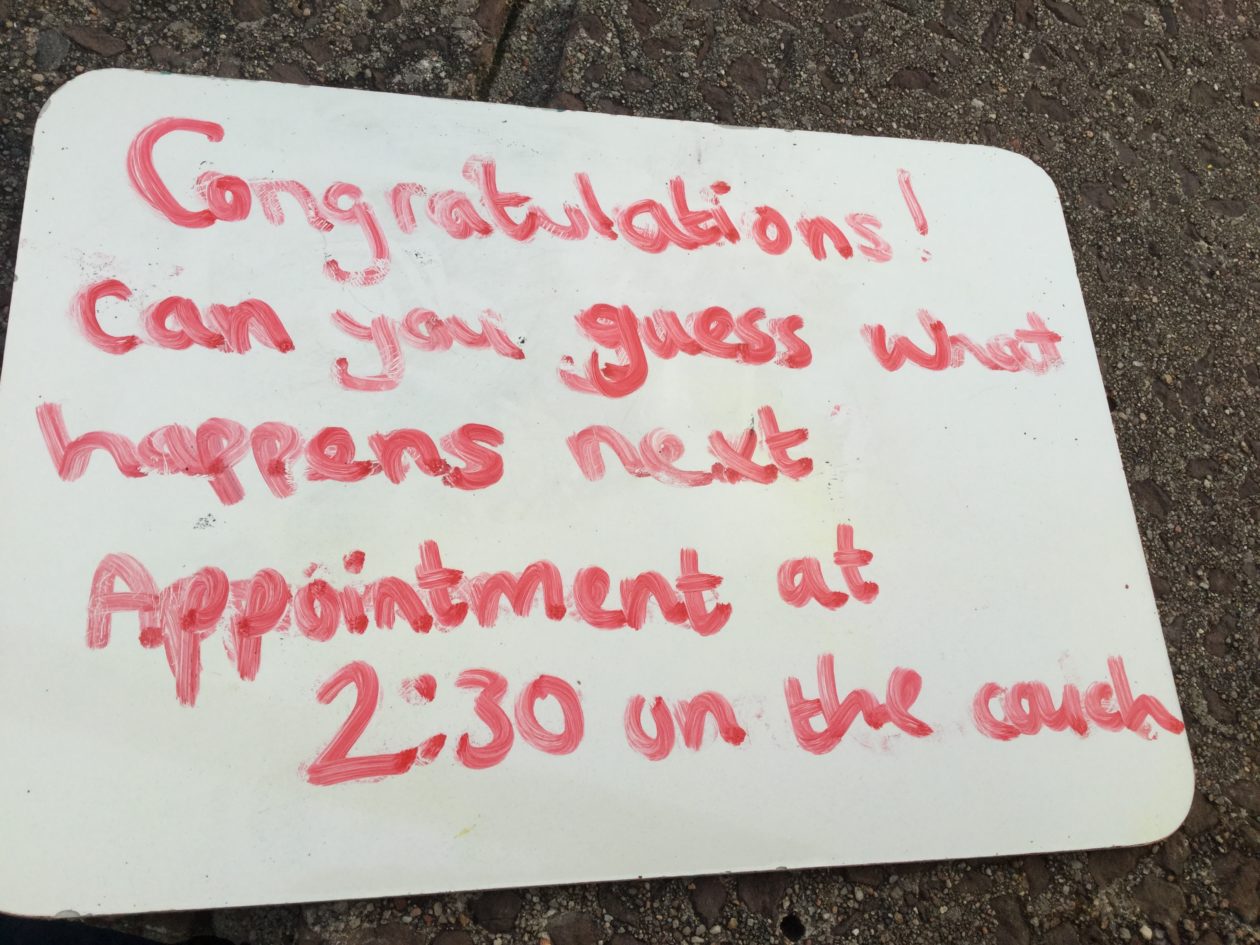 Congratulations!
Can you guess what
happens next
Appointment at
2:30 on the couch